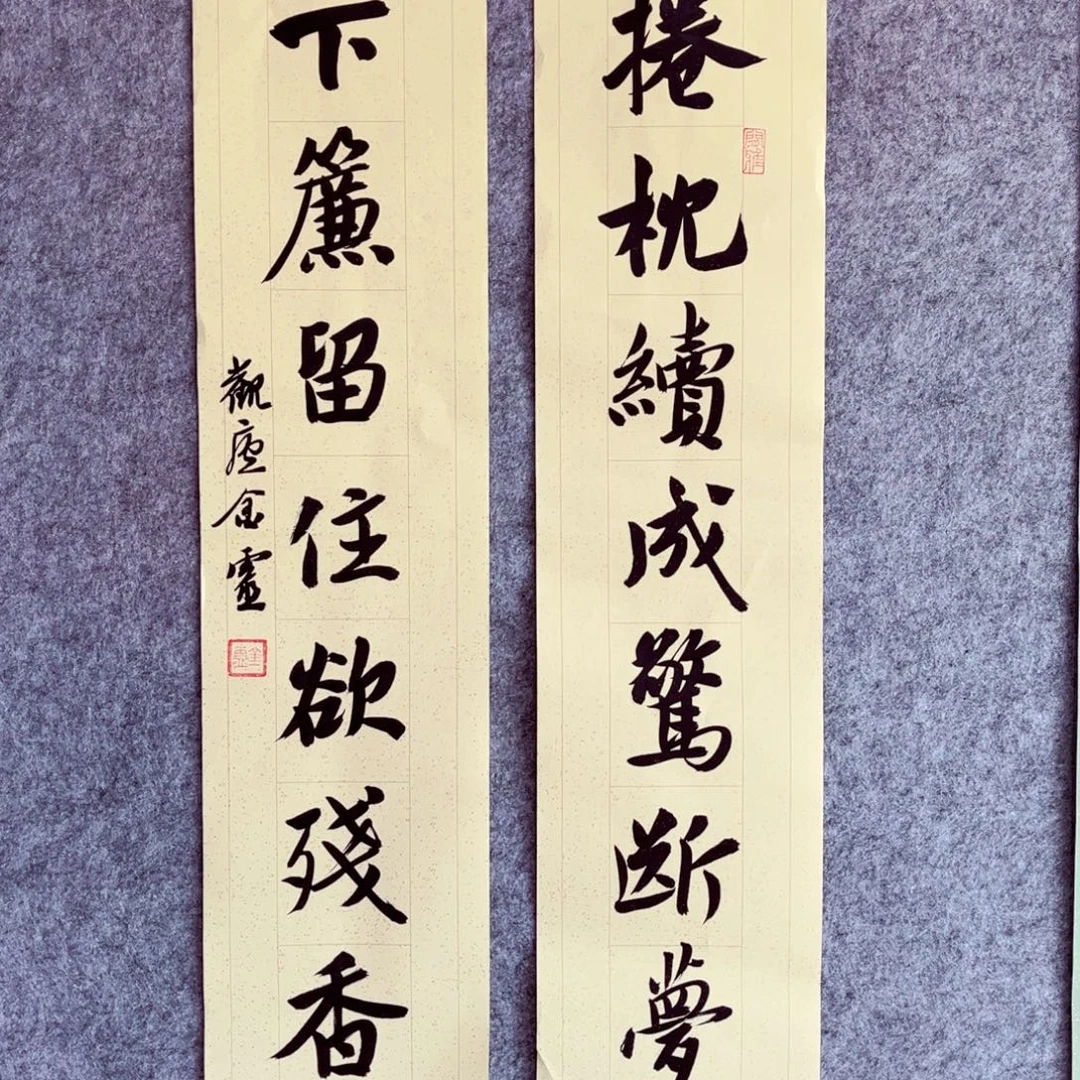 捲枕續成驚斷夢
下簾留住欲殘香
觀
金靈